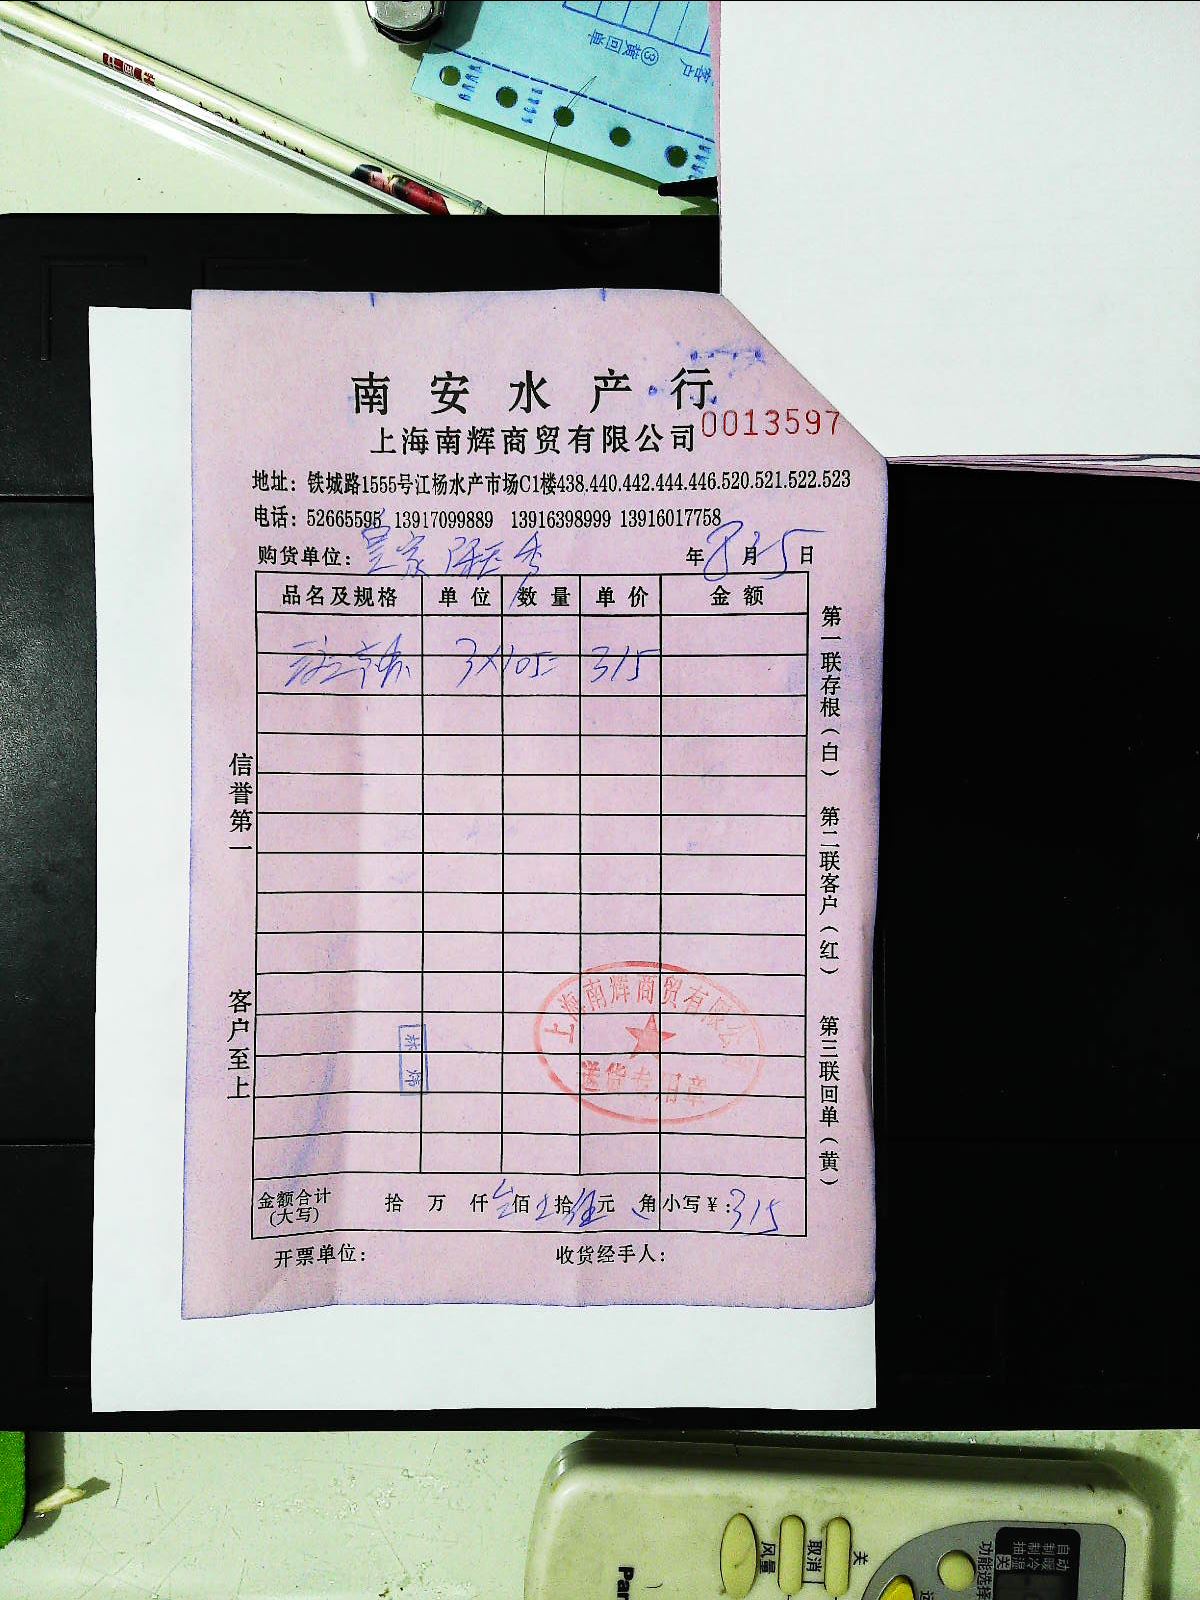 ③横回单
客户
中国
南安水产行
0013597
上海南辉商贸有限公司
地址：铁城路1555号江杨水产市场C1楼438.440.442.444.446.520.521.522.523
电话：52665595 13917099889 13916398999 13916017758
购货单位：皇家 年8月25日
品名及规格 单位 数量 单价 金额
3×105= 315
信誉第一
客户至上
第一联存根（白） 第二联客户（红） 第三联回单（黄）
上海南辉商贸有限公
送货专用章
林炜
金额合计(大写) 拾 万 仟 叁佰 拾 伍元 角 小写￥:315
开票单位： 收货经手人：
关
取消
风量
功能选择
自动 暖 冷 湿 关
Pan